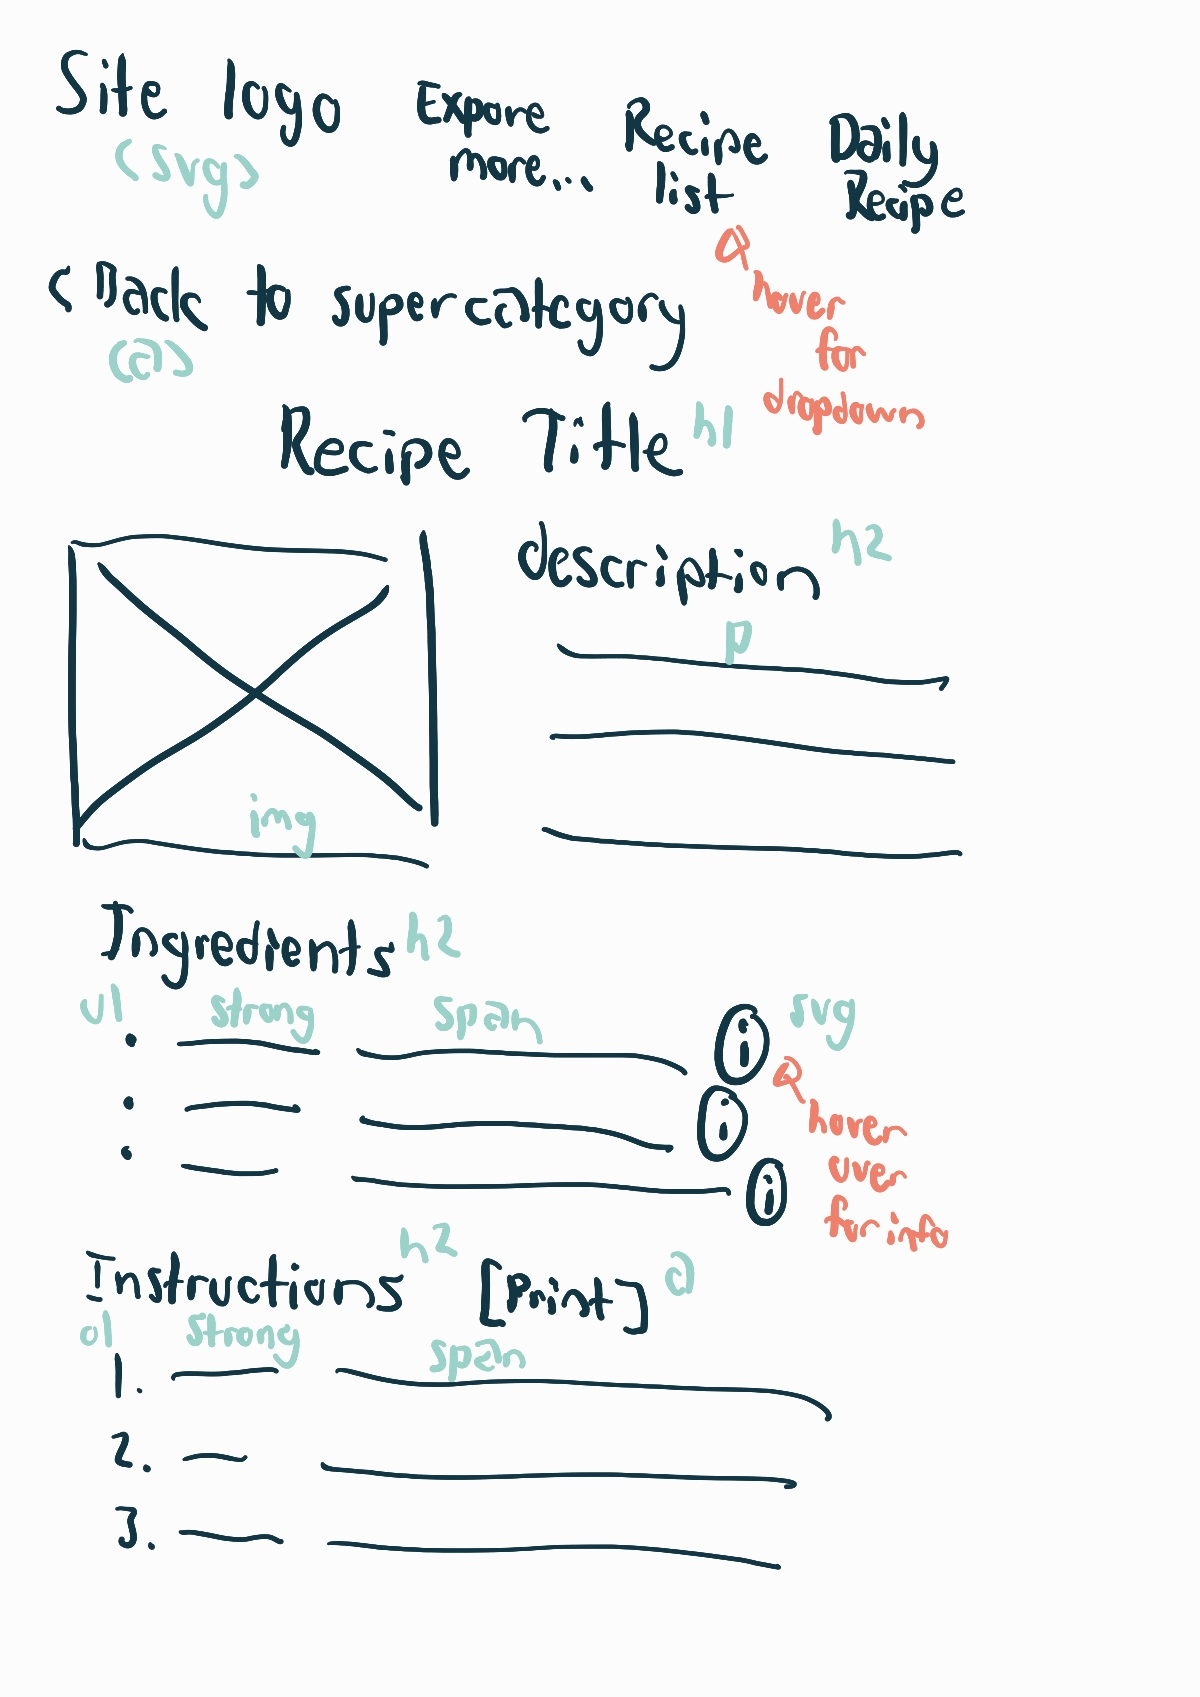 Site logo Expore Recipe Daily
more... list Recipe
(svg)
hover
for
dropdown
< Back to supercategory
(a)
Recipe Title h1
description h2
p
img
Ingredients h2
ul strong span svg
i
i
i
hover
over
for info
Instructions h2 [Print] a
ol strong span
1.
2.
3.